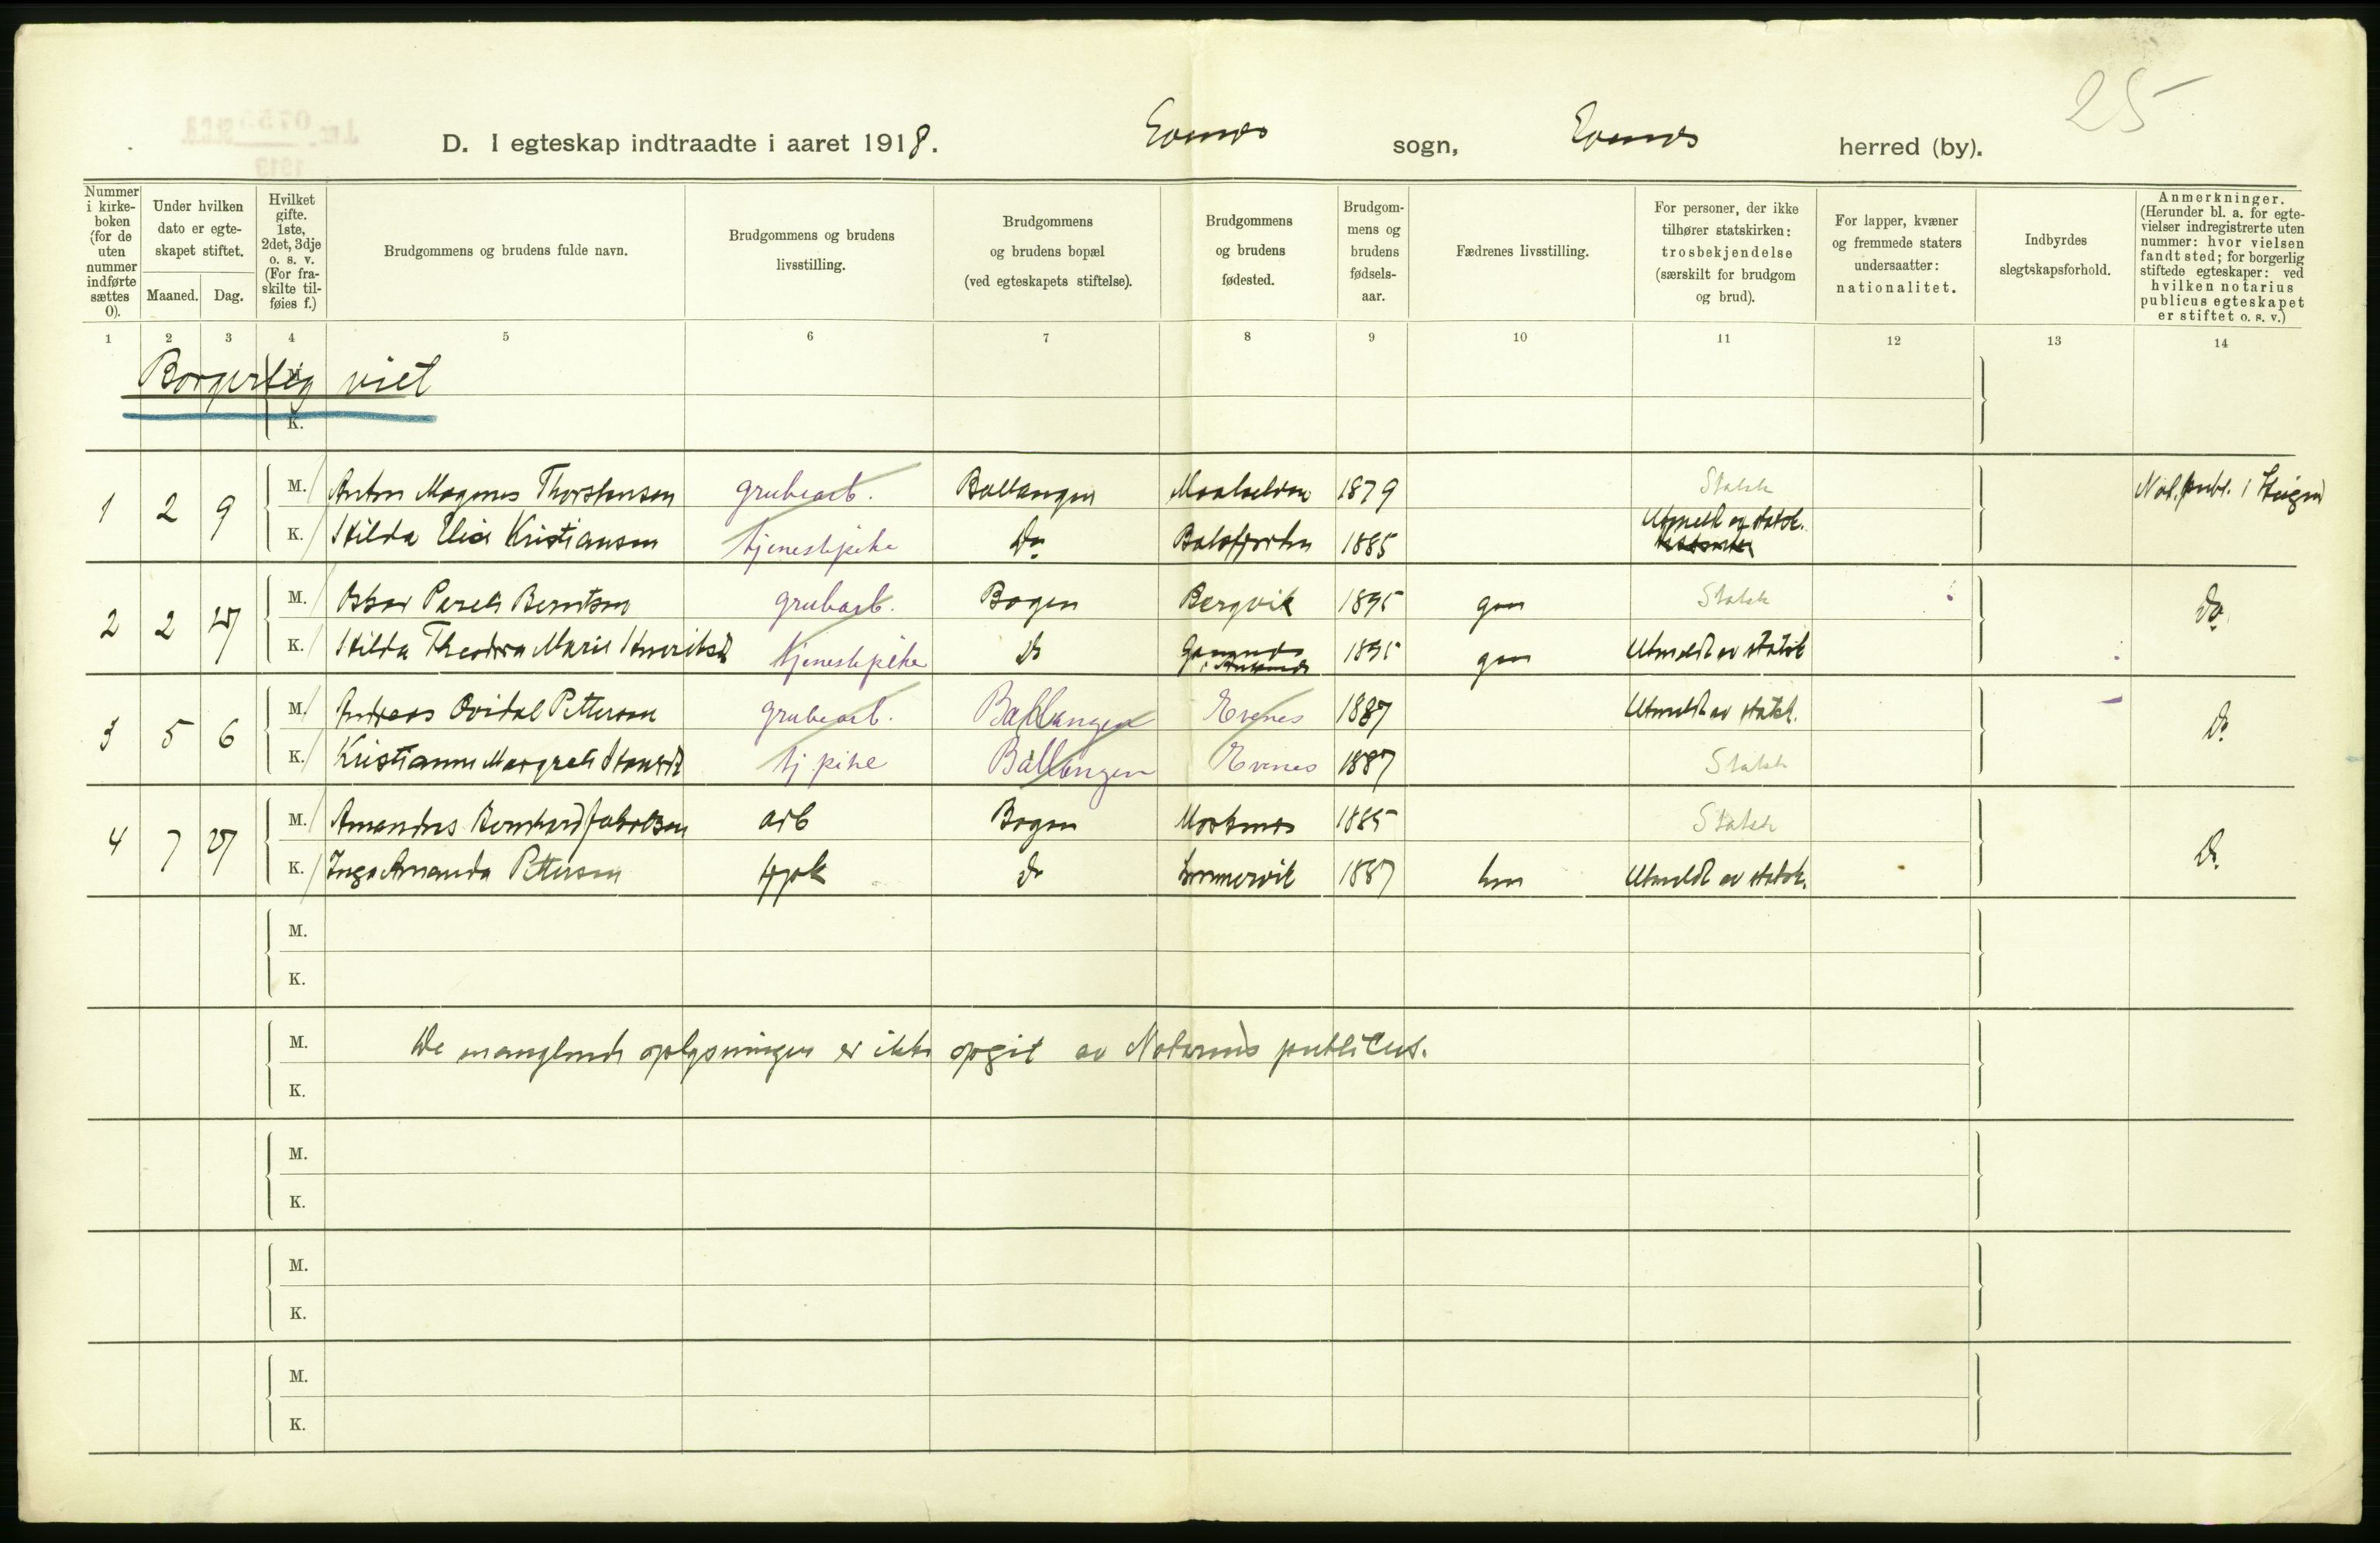 25
D. I egteskap indtraadte i aaret 1918. Evenes sogn, Evenes herred (by).
Nummer i kirke-boken (for de uten nummer indførte sættes 0).
Under hvilken dato er egte-skapet stiftet.
Maaned. Dag.
Hvilket gifte. 1ste, 2det, 3dje o. s. v. (For fra-skilte til-føies f.)
Brudgommens og brudens fulde navn.
Brudgommens og brudens livsstilling.
Brudgommens og brudens bopæl (ved egteskapets stiftelse).
Brudgommens og brudens fødested.
Brudgom-mens og brudens fødsels-aar.
Fædrenes livsstilling.
For personer, der ikke tilhører statskirken: trosbekjendelse (særskilt for brudgom og brud).
For lapper, kvæner og fremmede staters undersaatter: nationalitet.
Indbyrdes slegtskapsforhold.
Anmerkninger. (Herunder bl. a. for egte-vielser indregistrerte uten nummer: hvor vielsen fandt sted; for borgerlig stiftede egteskaper: ved hvilken notarius publicus egteskapet er stiftet o. s. v.)
1 2 3 4 5 6 7 8 9 10 11 12 13 14
Borgerlig viet
M.
K.
1 2 9 M. Anton Magnus Thorstensen grubearb. Ballangen Maalselven 1879 Statsk Not. publ. i Steigen
K. Hilda Elise Kristiansen tjenestepike Do Balsfjorden 1885 Utmeldt av statsk.
2 2 27 M. Oskar Pareli Berntsen grubearb. Bogen Bergvik 1895 gm Statsk Do
K. Hilda Theodora Marie Henriks tjenestepike Do 1895 gm Utmeldt av statsk
3 5 6 M. Andreas Ovidal Pettersen grubearb. Ballangen Evenes 1887 Utmeldt av statsk. Do
K. Kristianne Margrete tj pike Ballangen Evenes 1887 Statsk
4 7 27 M. Amandus Bernhard Jakobsen arb Bogen 1885 Statsk Do
K. Inga Amanda Pettersen Do 1887 Utmeldt av statsk.
M.
K.
M. De manglende oplysninger er ikke opgit av Notarius publicus.
K.
M.
K.
M.
K.
M.
K.